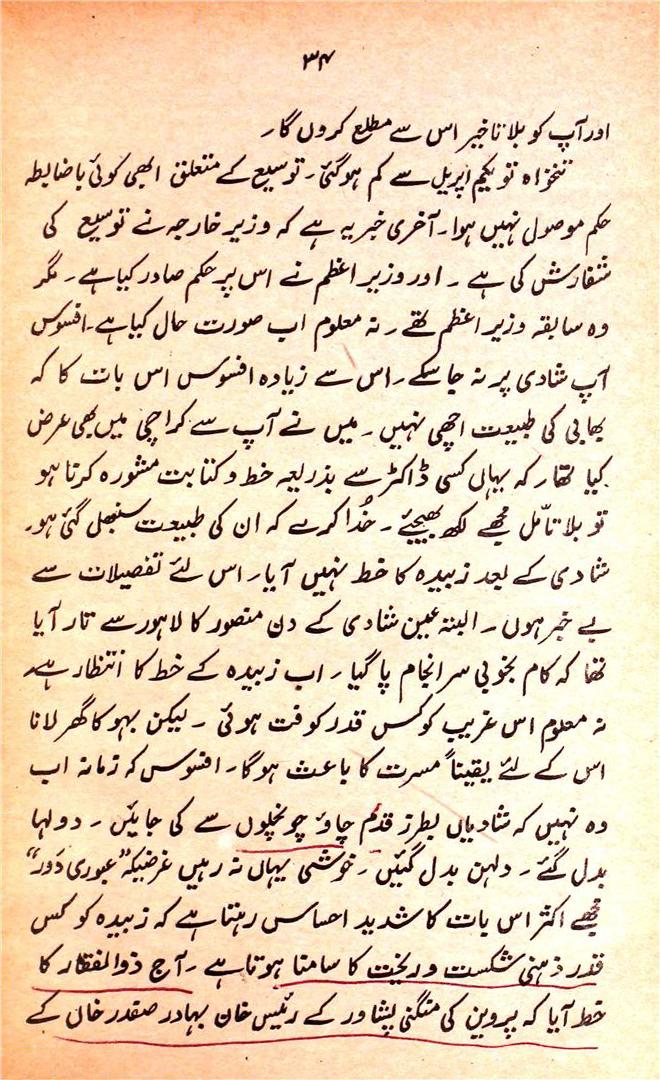 ۳۴
اور آپ کو بلا تاخیر اس سے مطلع کروں گا۔
تنخواہ تو یکم اپریل سے کم ہو گئی۔ توسیع کے متعلق ابھی کوئی باضابطہ
حکم موصول نہیں ہوا۔ آخری خبر یہ ہے کہ وزیر خارجہ نے توسیع کی
سفارش کی ہے۔ اور وزیر اعظم نے اس پر حکم صادر کیا ہے۔ مگر
وہ سابقہ وزیر اعظم تھے۔ نہ معلوم اب صورت حال کیا ہے۔ افسوس
آپ شادی پر نہ جا سکے۔ اس سے زیادہ افسوس اس بات کا کہ
بھابی کی طبیعت اچھی نہیں۔ میں نے آپ سے کراچی میں بھی عرض
کیا تھا۔ کہ یہاں کسی ڈاکٹر سے بذریعہ خط و کتابت مشورہ کرنا ہو
تو بلا تامّل مجھے لکھ بھیجئے۔ خُدا کرے کہ ان کی طبیعت سنبھل گئی ہو۔
شادی کے بعد زبیدہ کا خط نہیں آیا۔ اس لئے تفصیلات سے
بے خبر ہوں۔ البتہ عین شادی کے دن منصور کا لاہور سے تار آیا
تھا کہ کام بخوبی سر انجام پا گیا۔ اب زبیدہ کے خط کا انتظار ہے۔
نہ معلوم اس غریب کو کس قدر کوفت ہوئی۔ لیکن بہو کا گھر لانا
اس کے لئے یقیناً مسرت کا باعث ہوگا۔ افسوس کہ زمانہ اب
وہ نہیں کہ شادیاں بطرز قدم چاؤ چونچلوں سے کی جائیں۔ دولہا
بدل گئے۔ دلہن بدل گئیں۔ خوشی یہاں نہ رہیں غرضیکہ "عبوری دَور"
مجھے اکثر اس بات کا شدید احساس رہتا ہے کہ زبیدہ کو کس
قدر ذہنی شکست و ریخت کا سامنا ہوتا ہے۔ آج ذوالفقار کا
خط آیا کہ پروین کی منگنی پشاور کے رئیس خان بہادر صفدر خاں کے